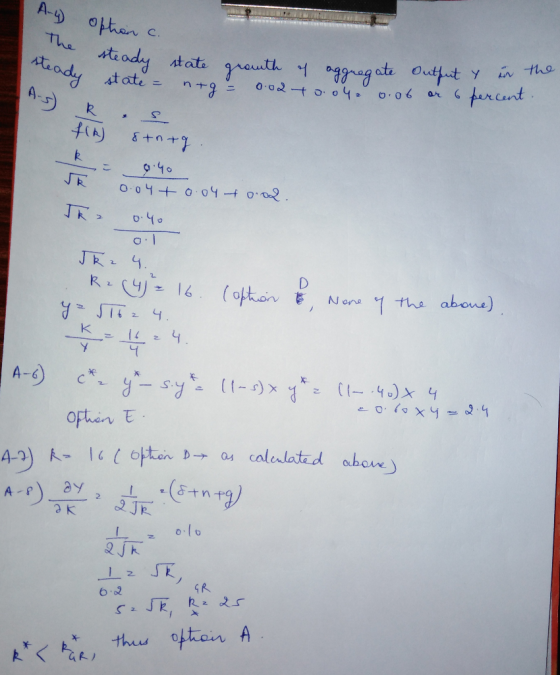 A-4) Option C.
The steady state growth of aggregate output Y in the
steady state = n+g = 0.02 + 0.04 = 0.06 or 6 percent.
A-5) k/f(k) = s/(δ+n+g)
k/√k = 0.40/(0.04 + 0.04 + 0.02).
√k = 0.40/0.1
√k = 4.
k = (4)² = 16. (option D, None of the above).
y = √16 = 4.
K/Y = 16/4 = 4.
A-6) c* = y* - s.y* = (1-s) × y* = (1-.40) × 4
= 0.60 × 4 = 2.4
Option E.
A-7) k = 16 (option D → as calculated above)
A-8) ∂Y/∂K = 1/(2√k) = (δ+n+g)
1/(2√k) = 0.10
1/0.2 = √k,
5 = √k, k*GR = 25
k* < k*GR, thus option A.